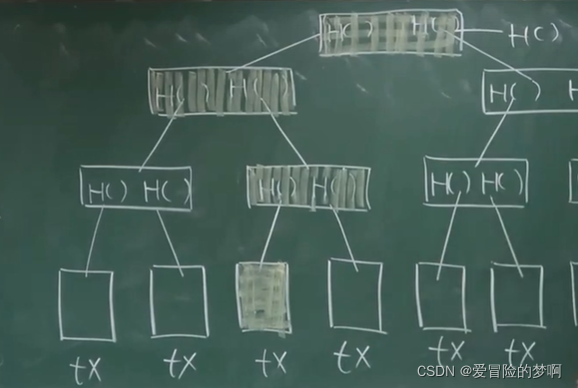 H() H() H()
H() H() H() H
H() H() H() H() H() H()
tx tx tx tx tx tx
CSDN @爱冒险的梦啊